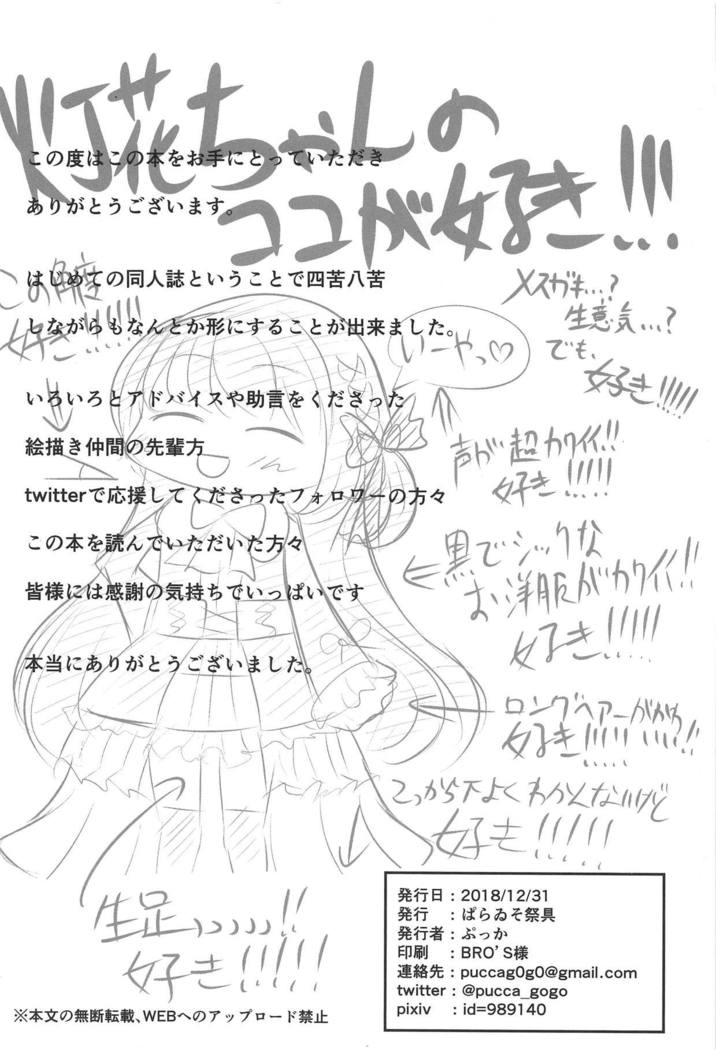 灯花ちゃんの
ココが好き!!!
この度はこの本をお手にとっていただき
ありがとうございます。
はじめての同人誌ということで四苦八苦
しながらもなんとか形にすることが出来ました。
いろいろとアドバイスや助言をくださった
絵描き仲間の先輩方
twitterで応援してくださったフォロワーの方々
この本を読んでいただいた方々
皆様には感謝の気持ちでいっぱいです
本当にありがとうございました。
この角度
好き!!!!!
いーやっ♡
メスガキ...?
生意気...?
でも、
好き!!!!!
声が超カワイイ!!
好き!!!!!
←黒でシックな
お洋服がカワイイ!!
好き!!!!!
ロングヘアーがかわ
いい!!
好き!!!!!
こっから下よくわかんないけど
好き!!!!!
生足ッッッ!!
好き!!!!!
発行日：2018/12/31
発行　：ぱらゐそ祭具
発行者：ぷっか
印刷　：BRO'S様
連絡先：puccag0g0@gmail.com
twitter：@pucca_gogo
pixiv　：id=989140
※本文の無断転載、WEBへのアップロード禁止